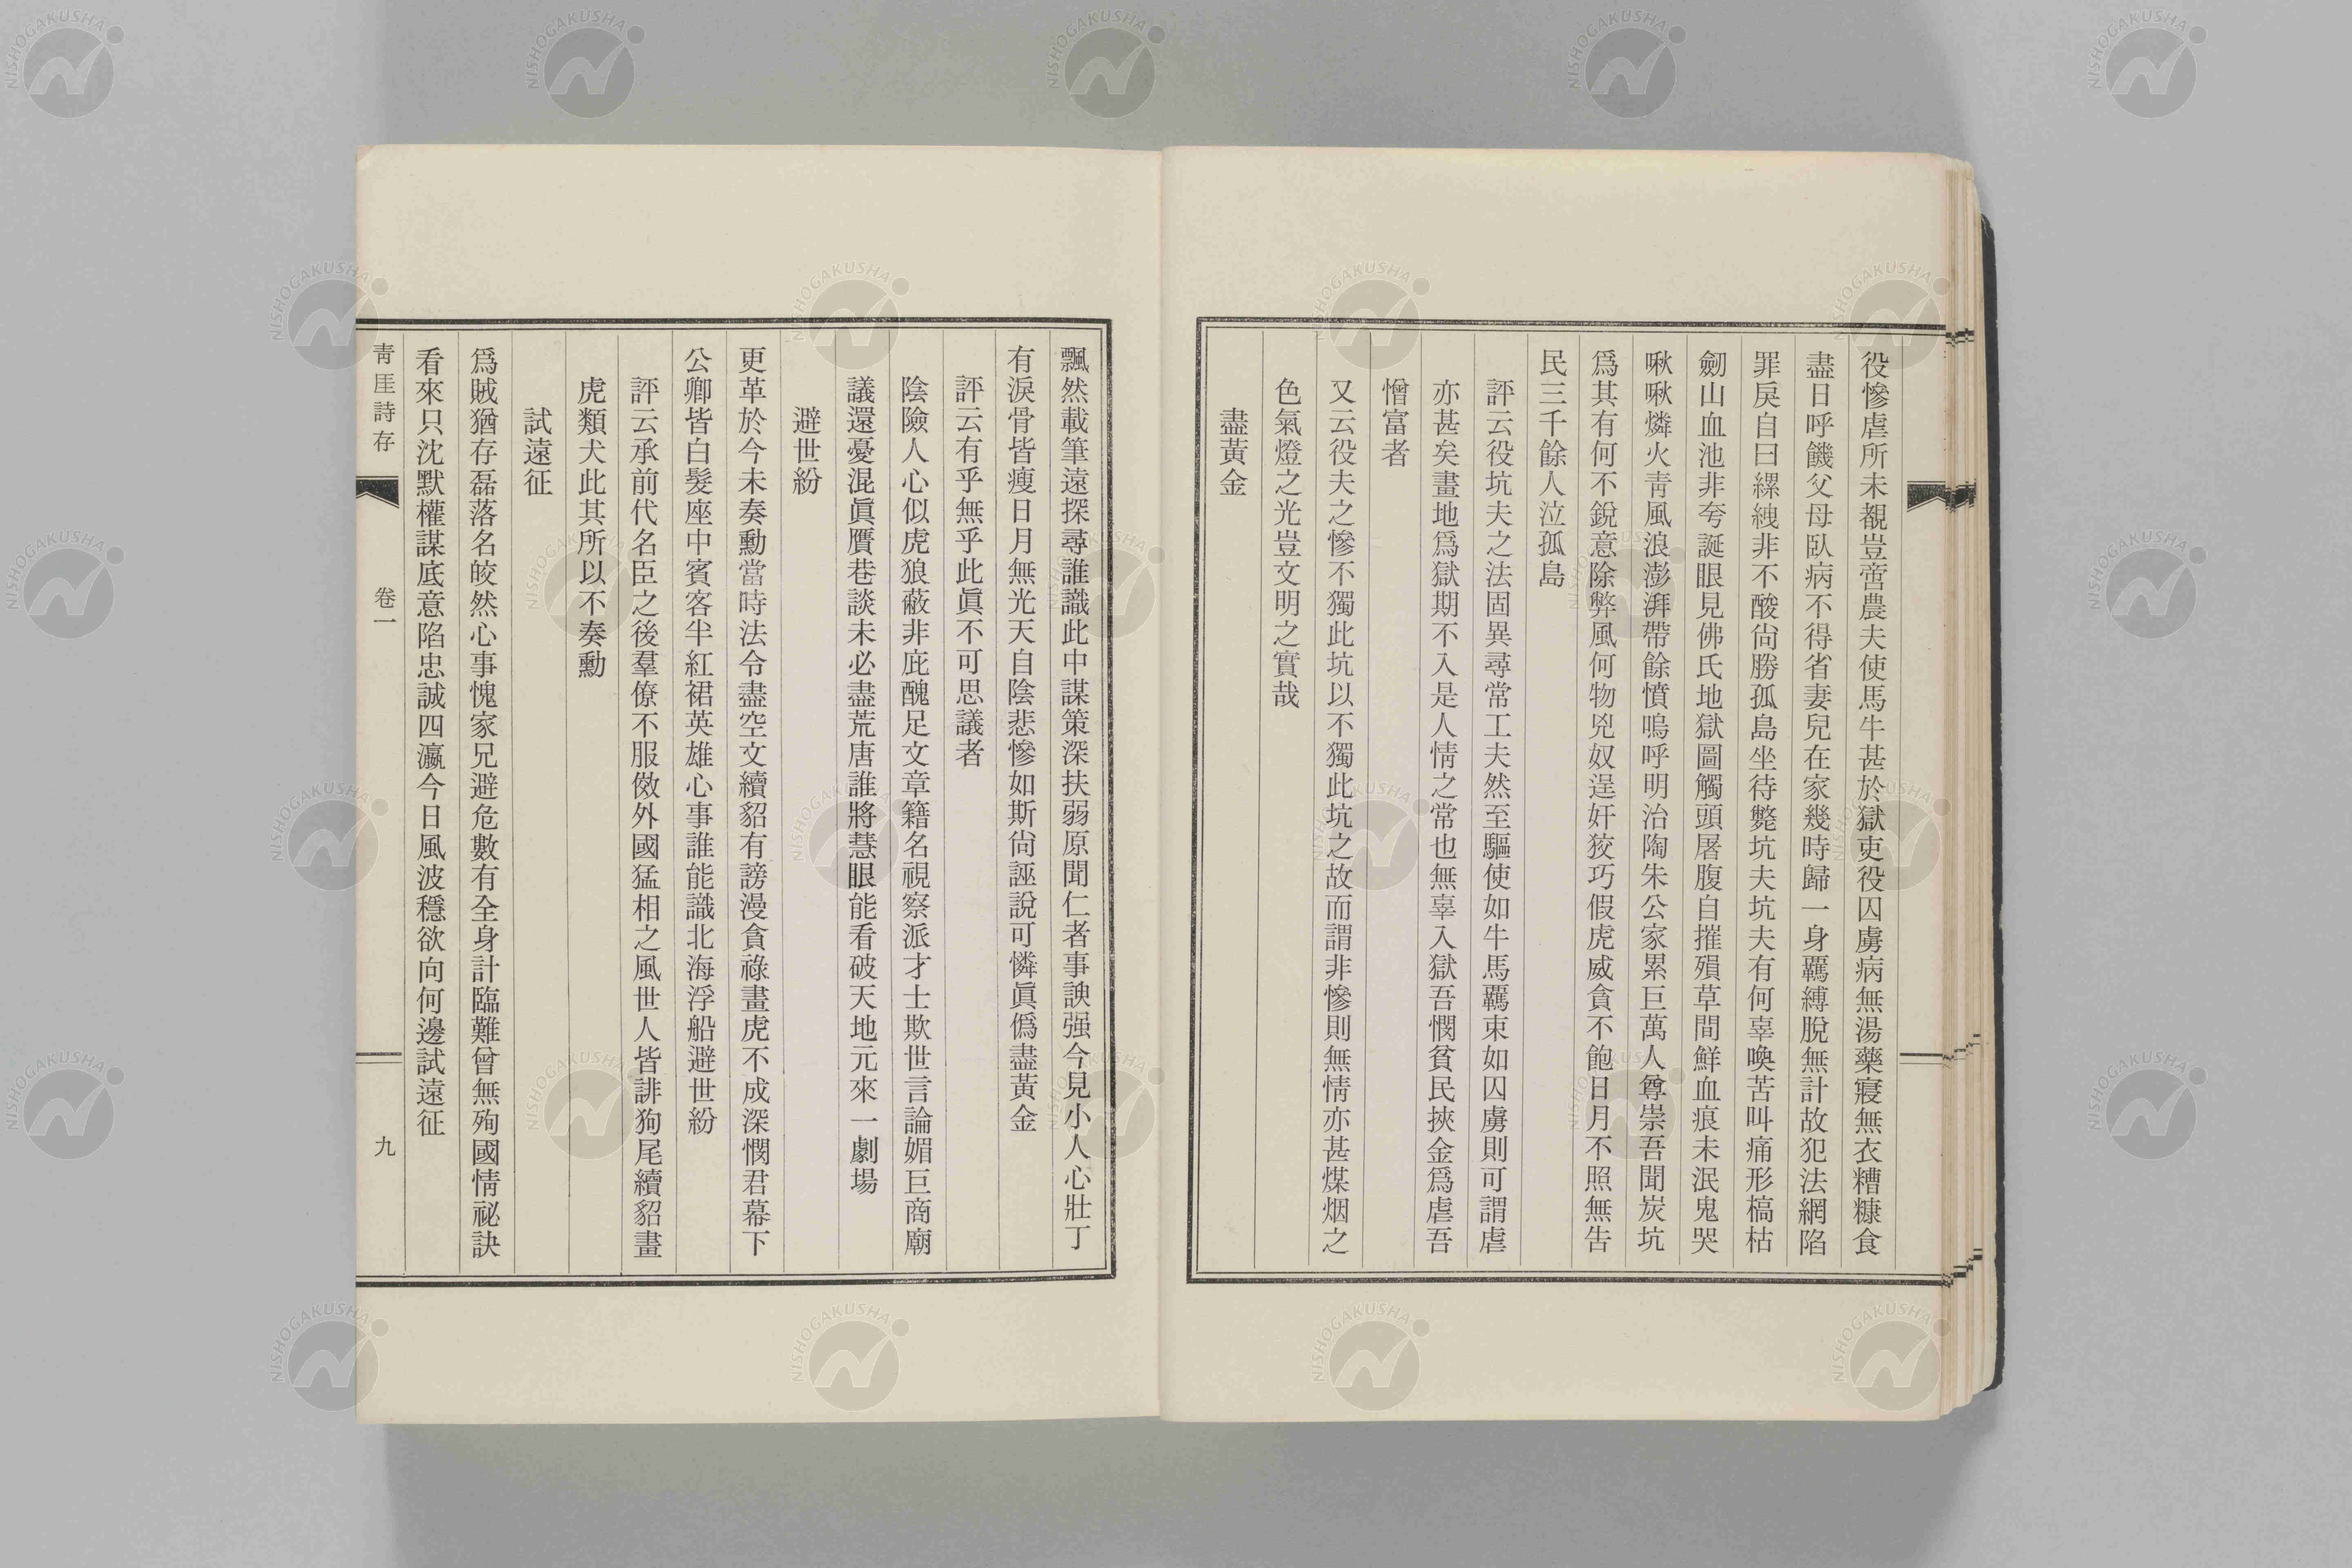 役慘虐所未覩豈啻農夫使馬牛甚於獄吏役囚虜病無湯藥寢無衣糟糠食
盡日呼饑父母臥病不得省妻兒在家幾時歸一身羈縛脫無計故犯法網陷
罪戾自曰縲絏非不酸尙勝孤島坐待斃坑夫坑夫有何辜喚苦叫痛形槁枯
劒山血池非夸誕眼見佛氏地獄圖觸頭屠腹自摧殞草間鮮血痕未泯鬼哭
啾啾燐火靑風浪澎湃帶餘憤嗚呼明治陶朱公家累巨萬人尊崇吾聞炭坑
爲其有何不銳意除弊風何物兇奴逞奸狡巧假虎威貪不飽日月不照無告
民三千餘人泣孤島
評云役坑夫之法固異尋常工夫然至驅使如牛馬羈束如囚虜則可謂虐
亦甚矣畫地爲獄期不入是人情之常也無辜入獄吾憫貧民挾金爲虐吾
憎富者
又云役夫之慘不獨此坑以不獨此坑之故而謂非慘則無情亦甚煤烟之
色氣燈之光豈文明之實哉
盡黃金
飄然載筆遠探尋誰識此中謀策深扶弱原聞仁者事諛强今見小人心壯丁
有淚骨皆瘦日月無光天自陰悲慘如斯尙誣說可憐眞僞盡黃金
評云有乎無乎此眞不可思議者
陰險人心似虎狼蔽非庇醜足文章籍名視察派才士欺世言論媚巨商廟
議還憂混眞贋巷談未必盡荒唐誰將慧眼能看破天地元來一劇場
避世紛
更革於今未奏勳當時法令盡空文續貂有謗漫貪祿畫虎不成深憫君幕下
公卿皆白髮座中賓客半紅裙英雄心事誰能識北海浮船避世紛
評云承前代名臣之後羣僚不服傚外國猛相之風世人皆誹狗尾續貂畫
虎類犬此其所以不奏勳
試遠征
爲賊猶存磊落名皎然心事愧家兄避危數有全身計臨難曾無殉國情祕訣
看來只沈默權謀底意陷忠誠四瀛今日風波穩欲向何邊試遠征
靑厓詩存
卷一
九
NISHOGAKUSHA